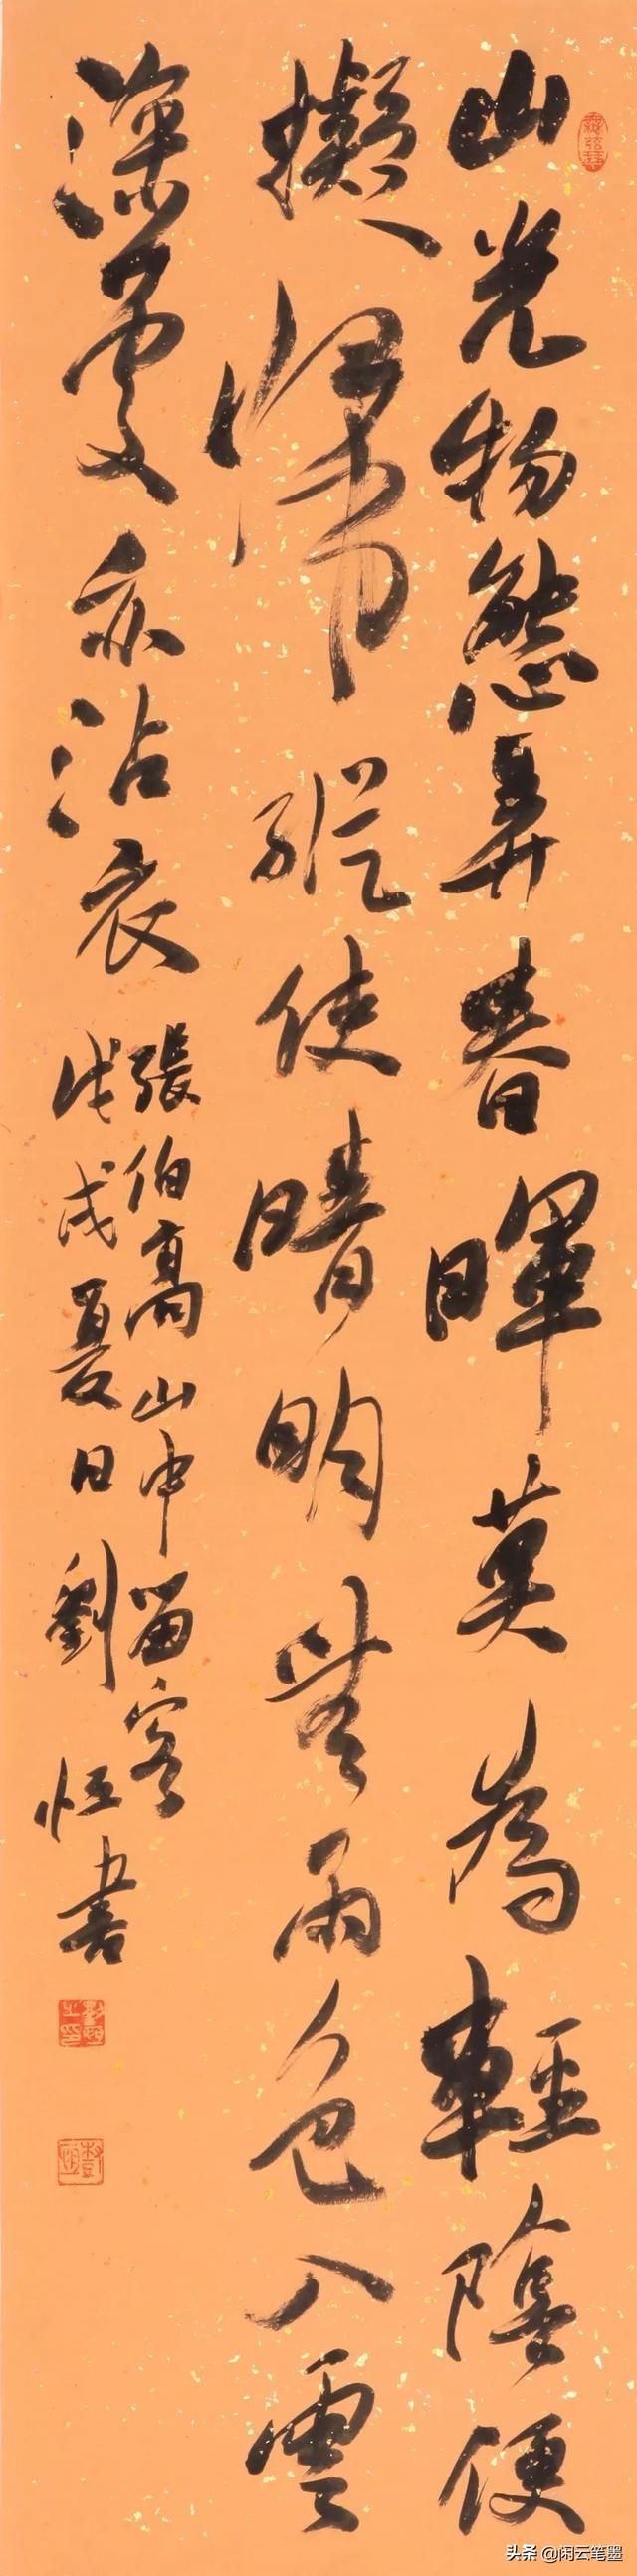 山光物態弄春暉莫為輕陰便
擬歸縱使晴明無雨色入雲
深處亦沾衣
張伯高山中留客
戊戌夏日劉恒書
头条 @闲云笔墨